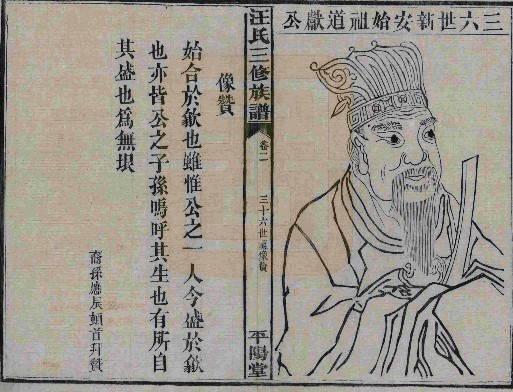 三六世新安始祖道獻公
汪氏三修族譜
卷二
三十六世遺像贊
平陽堂
像贊
始合於歙也雖惟公之一人今盛於歙
也亦皆公之子孫嗚呼其生也有所自
其盛也爲無垠
裔孫應辰頓首拜贊